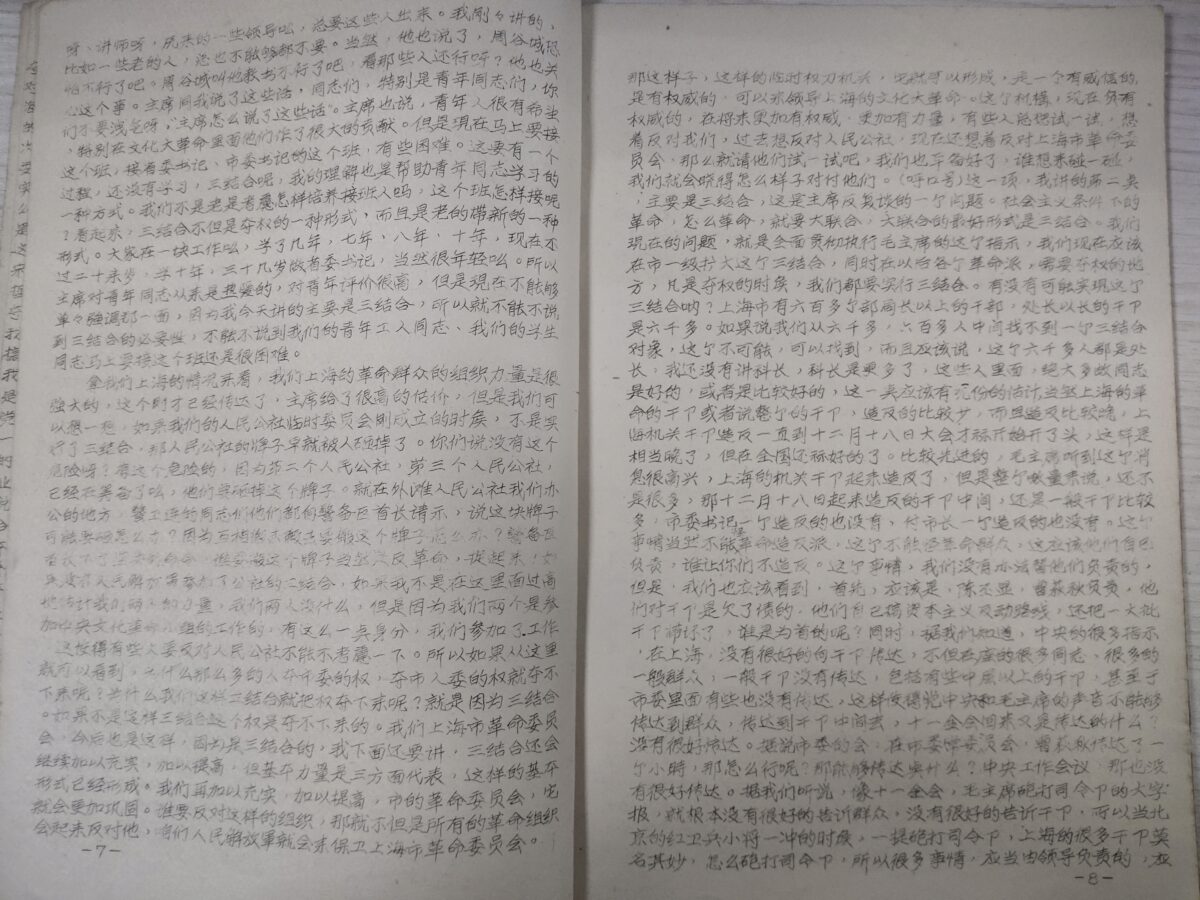 呀、讲师呀，原来的一些领导吆，总要这些人出来。我刚々讲的，
比如一些老的人，总也不能够都不要。当然，他也说了，周谷城恐
怕不行了吧。周谷城叫他教书不行了吧，看那些人还行呀？他也关
心这个事。主席同我说了这些话，同志们，特别是青年同志们，你
们不要泄气呀，“主席怎么说了这些话”。主席也说，青年人很有希望
，特别在文化大革命里面他们作了很大的贡献。但是现在马上要接
这个班，接省委书记、市委书记的这个班，有些困难。这要有一个
过程，还没有学习，三结合呢，我的理解也是帮助青年同志学习的
一种方式。我们不是老是考虑怎样培养接班人吗，这个班怎样接呢
？看起来，三结合不但是夺权的一种形式，而且是老的带新的一种
形式。大家在一块工作么，学了几年，七年、八年、十年，现在不
过二十来岁，学十年，三十几岁做省委书记，当然很年轻么。所以
主席对青年同志从来是热爱的，对青年评价很高，但是现在不能够
单々强调那一面，因为我今天讲的主要是三结合，所以就不能不说
到三结合的必要性，不能不说到我们的青年工人同志、我们的学生
同志马上要接这个班还是很困难。
拿我们上海的情况来看，我们上海的革命群众的组织力量是很
强大的，这个刚才已经传达了，主席给了很高的估价，但是我们可
以想一想，如果我们的人民公社临时委员会刚成立的时候，不是实
行了三结合，那人民公社的牌子早就被人砸掉了。你们说没有这个
危险呀？有这个危险的，因为第二个人民公社，第三个人民公社，
已经在筹备了么，他们要砸掉这个牌子。就在外滩人民公社我们办
公的地方，警卫连的同志们他们都向警备区首长请示，说这块牌子
可能要砸怎么办？
参加了公社的三结合，如果我不是在这里面过高
地估计我们两个的力量，我们两人没什么，但是因为我们两个是参
加中央文化革命小组的工作的，有这么一点身份，我们参加了工作
，这使得有些人要反对人民公社不能不考虑一下。所以如果从这里
就可以看到，为什么那么多的人夺市委的权，夺市人委的权就夺不
下来呢？为什么我们这样三结合就把权夺下来呢？就是因为三结合
。如果不是这样三结合这个权是夺不下来的。我们上海市革命委员
会，今后也是这样，因为是三结合的，我下面还要讲，三结合还会
继续加以充实，加以提高，但基本力量是三方面代表，这样的基本
形式已经形成。我们再加以充实，加以提高，市的革命委员会，它
就会更加巩固。谁要反对这样的组织，那就不但是所有的革命组织
会起来反对他，咱们人民解放军就会来保卫上海市革命委员会。
-7-
那这样子，这样的临时权力机关，它就可以形成，是一个有威信的，
是有权威的，可以来领导上海的文化大革命。这个机构，现在负有
权威的，在将来更加有权威，更加有力量，有些人能想试一试，想
着反对我们，过去想反对人民公社，现在还想着反对上海市革命委
员会，那么就请他们试一试吧，我们也准备好了，谁想来碰一碰，
我们就会晓得怎么样子对付他们。（呼口号）这一项，我讲的第二点
，主要是三结合，这是主席反复谈的一个问题。社会主义条件下的
革命，怎么革命，就要大联合，大联合的最好形式是三结合。我们
现在的问题，就是全面贯彻执行毛主席的这个指示，我们现在应该
在市一级扩大这个三结合，同时在以后各个革命派，需要夺权的地
方，凡是夺权的时候，我们都要实行三结合。有没有可能实现这个
三结合呐？上海市有六百多个部局长以上的干部，处长以长的干卩
是六千多。如果说我们从六千多，六百多人中间找不到一个三结合
对象，这个不可能，可以找到，而且应该说，这个六千多人都是处
长，我还没有讲科长，科长是更多了，这些人里面，绝大多数同志
是好的，或者是比较好的，这一点应该有充份的估计，当然上海的革
命的干卩或者说整个的干卩，造反的比较少，而且造反比较晚，上
海机关干卩造反一直到十二月十八日大会才标开始开了头，这样是
相当晚了，但在全国还标好的了。比较先进的，毛主席听到这个消
息很高兴，上海的机关干卩起来造反了，但是整个数量来说，还不
是很多，那十二月十八日起来造反的干卩中间，还是一般干卩比较
多，市委书记一个造反的也没有，付市长一个造反的也没有。这个
事情当然不能怪革命造反派，这个不能怪革命群众，这应该他们自己
负责，谁让你们不造反。这个事情，我们没有办法替他们负责的，
但是，我们也应该看到，首先，应该是，陈丕显，曹荻秋负责，他
们对干卩是欠了债的，他们自己搞资本主义反动路线，还把一大批
干卩带坏了，谁是为首的呢？同时，据我们知道，中央的很多指示
，在上海，没有很好的向干卩传达，不但在座的很多同志、很多的
一般群众，一般干卩没有传达，包括有些中层以上的干卩，甚至于
市委里面有些也没有传达，这样使得党中央和毛主席的声音不能够
传达到群众，传达到干卩中间去，十一全会回来又是传达的什么？
没有很好传达。据说市委的会，在市委常委员会，曹荻秋传达了一
个小時，那怎么行呢？那能够传达些什么？中央工作会议，那也没
有很好传达。据我们听说，像十一全会，毛主席砲打司令卩的大字
报，就根本没有很好的告诉群众，没有很好的告诉干卩，所以当北
京的红卫兵小将一冲的时候，一提砲打司令卩，上海的很多干卩莫
名其妙，怎么砲打司令卩，所以很多事情，应当由领导负责的，应
-8-